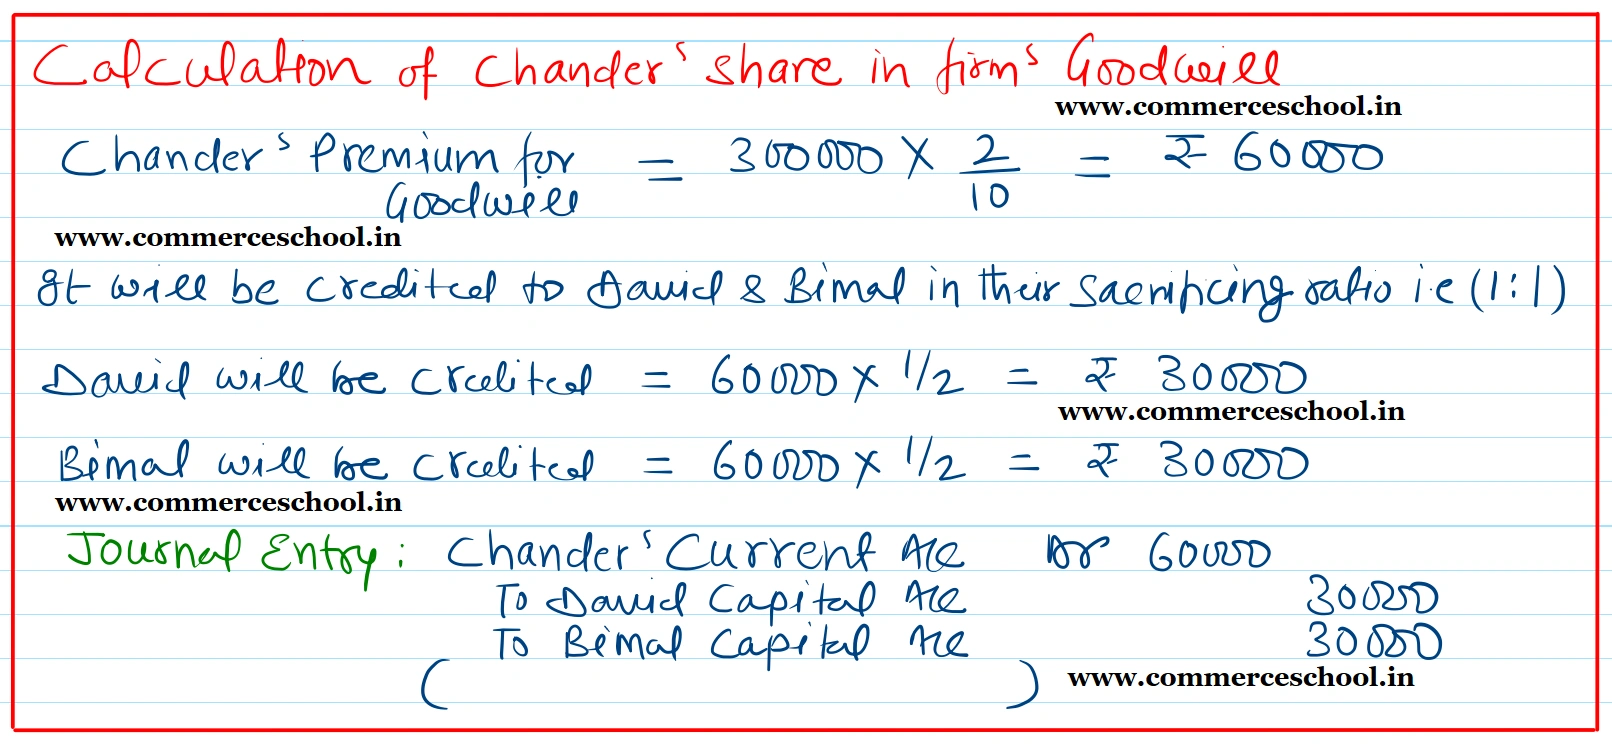 Calculation of Chander's share in firm's Goodwill
www.commerceschool.in
Chander's Premium for Goodwill = 300000 × 2/10 = ₹ 60000
www.commerceschool.in
It will be credited to David & Bimal in their Sacrificing ratio i.e (1:1)
David will be Credited = 60000 × 1/2 = ₹ 30000
www.commerceschool.in
Bimal will be Credited = 60000 × 1/2 = ₹ 30000
www.commerceschool.in
Journal Entry: Chander's Current A/c Dr 60000
To David Capital A/c 30000
To Bimal Capital A/c 30000
( )
www.commerceschool.in